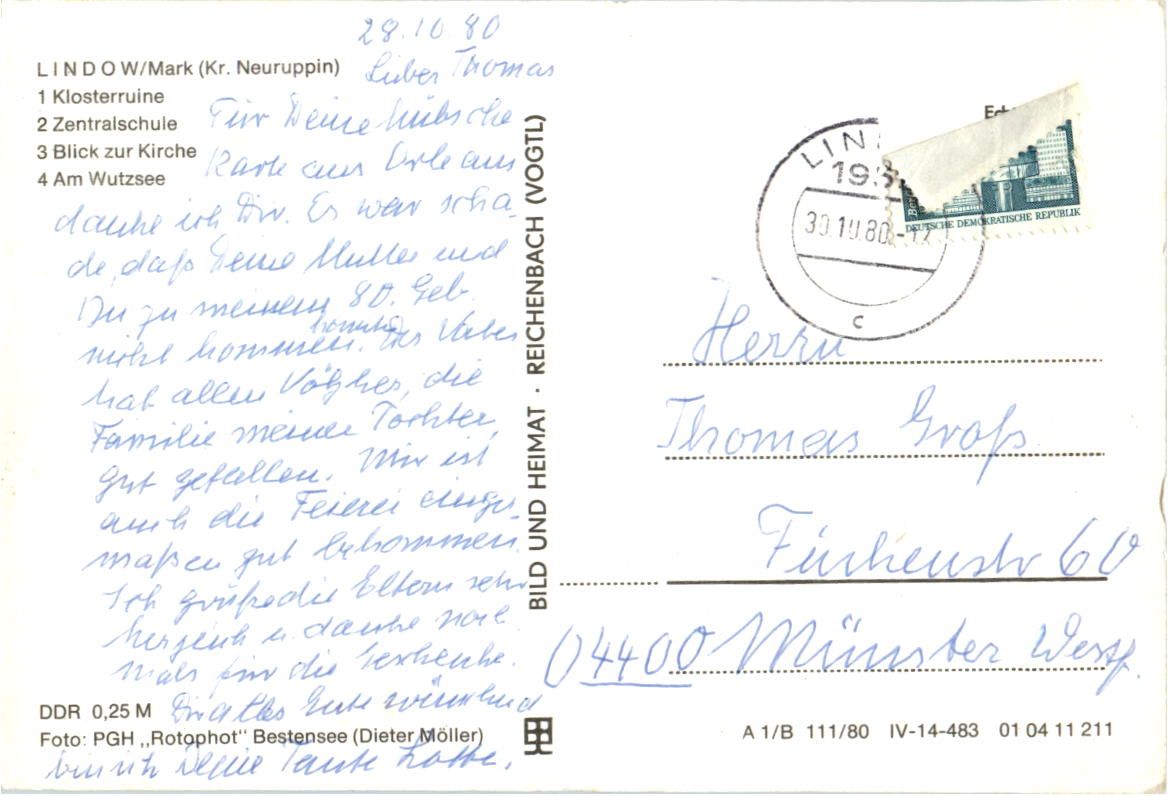 28.10.80
LINDOW/Mark (Kr. Neuruppin)
1 Klosterruine
2 Zentralschule
3 Blick zur Kirche
4 Am Wutzsee
Lieber Thomas
Für Deine hübsche
Karte aus
danke ich Dir. Es war scha-
de, daß Deine Mutter und
Du zu meinem 80. Geb.
nicht kommen konnten.
hat allen die
Familie meiner Tochter,
gut gefallen. Mir ist
auch die Feierei einiger-
maßen gut bekommen.
Ich grüße die Eltern sehr
herzlich u. danke noch
mals für die Geschenke.
Dir alles Gute wünschend
bin ich Deine Tante Lotte.
DDR 0,25 M
Foto: PGH „Rotophot" Bestensee (Dieter Möller)
BILD UND HEIMAT · REICHENBACH (VOGTL)
LIN
195
30.10.80-12
c
DEUTSCHE DEMOKRATISCHE REPUBLIK
Herrn
Thomas Groß
60
04400 Münster Westf.
A 1/B 111/80 IV-14-483 01 04 11 211